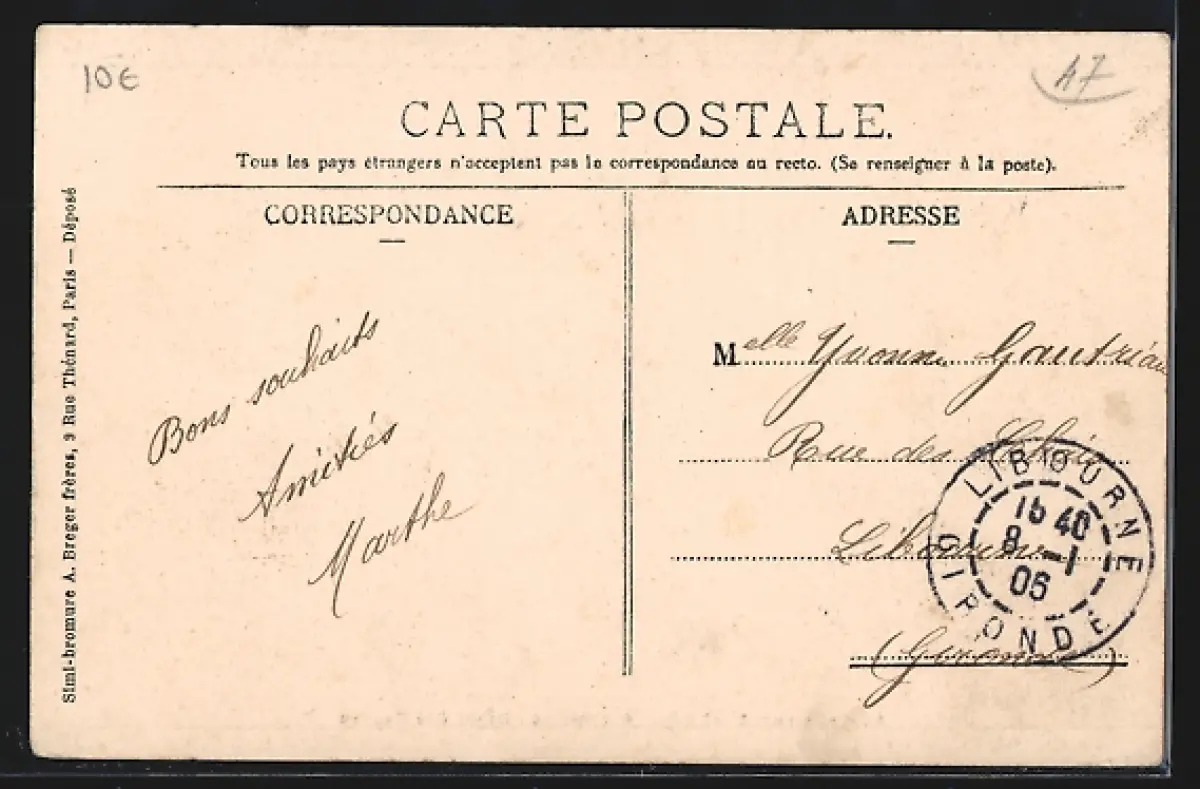 10€
47
CARTE POSTALE.
Tous les pays étrangers n'acceptent pas la correspondance au recto. (Se renseigner à la poste).
CORRESPONDANCE
ADRESSE
Simi-bromure A. Breger frères, 9 Rue Thénard, Paris — Déposé
Bons souhaits
Amitiés
Marthe
Melle Yvonne
Rue des
Libourne
(Gironde)
LIBOURNE
16 40
8 - 1
06
GIRONDE